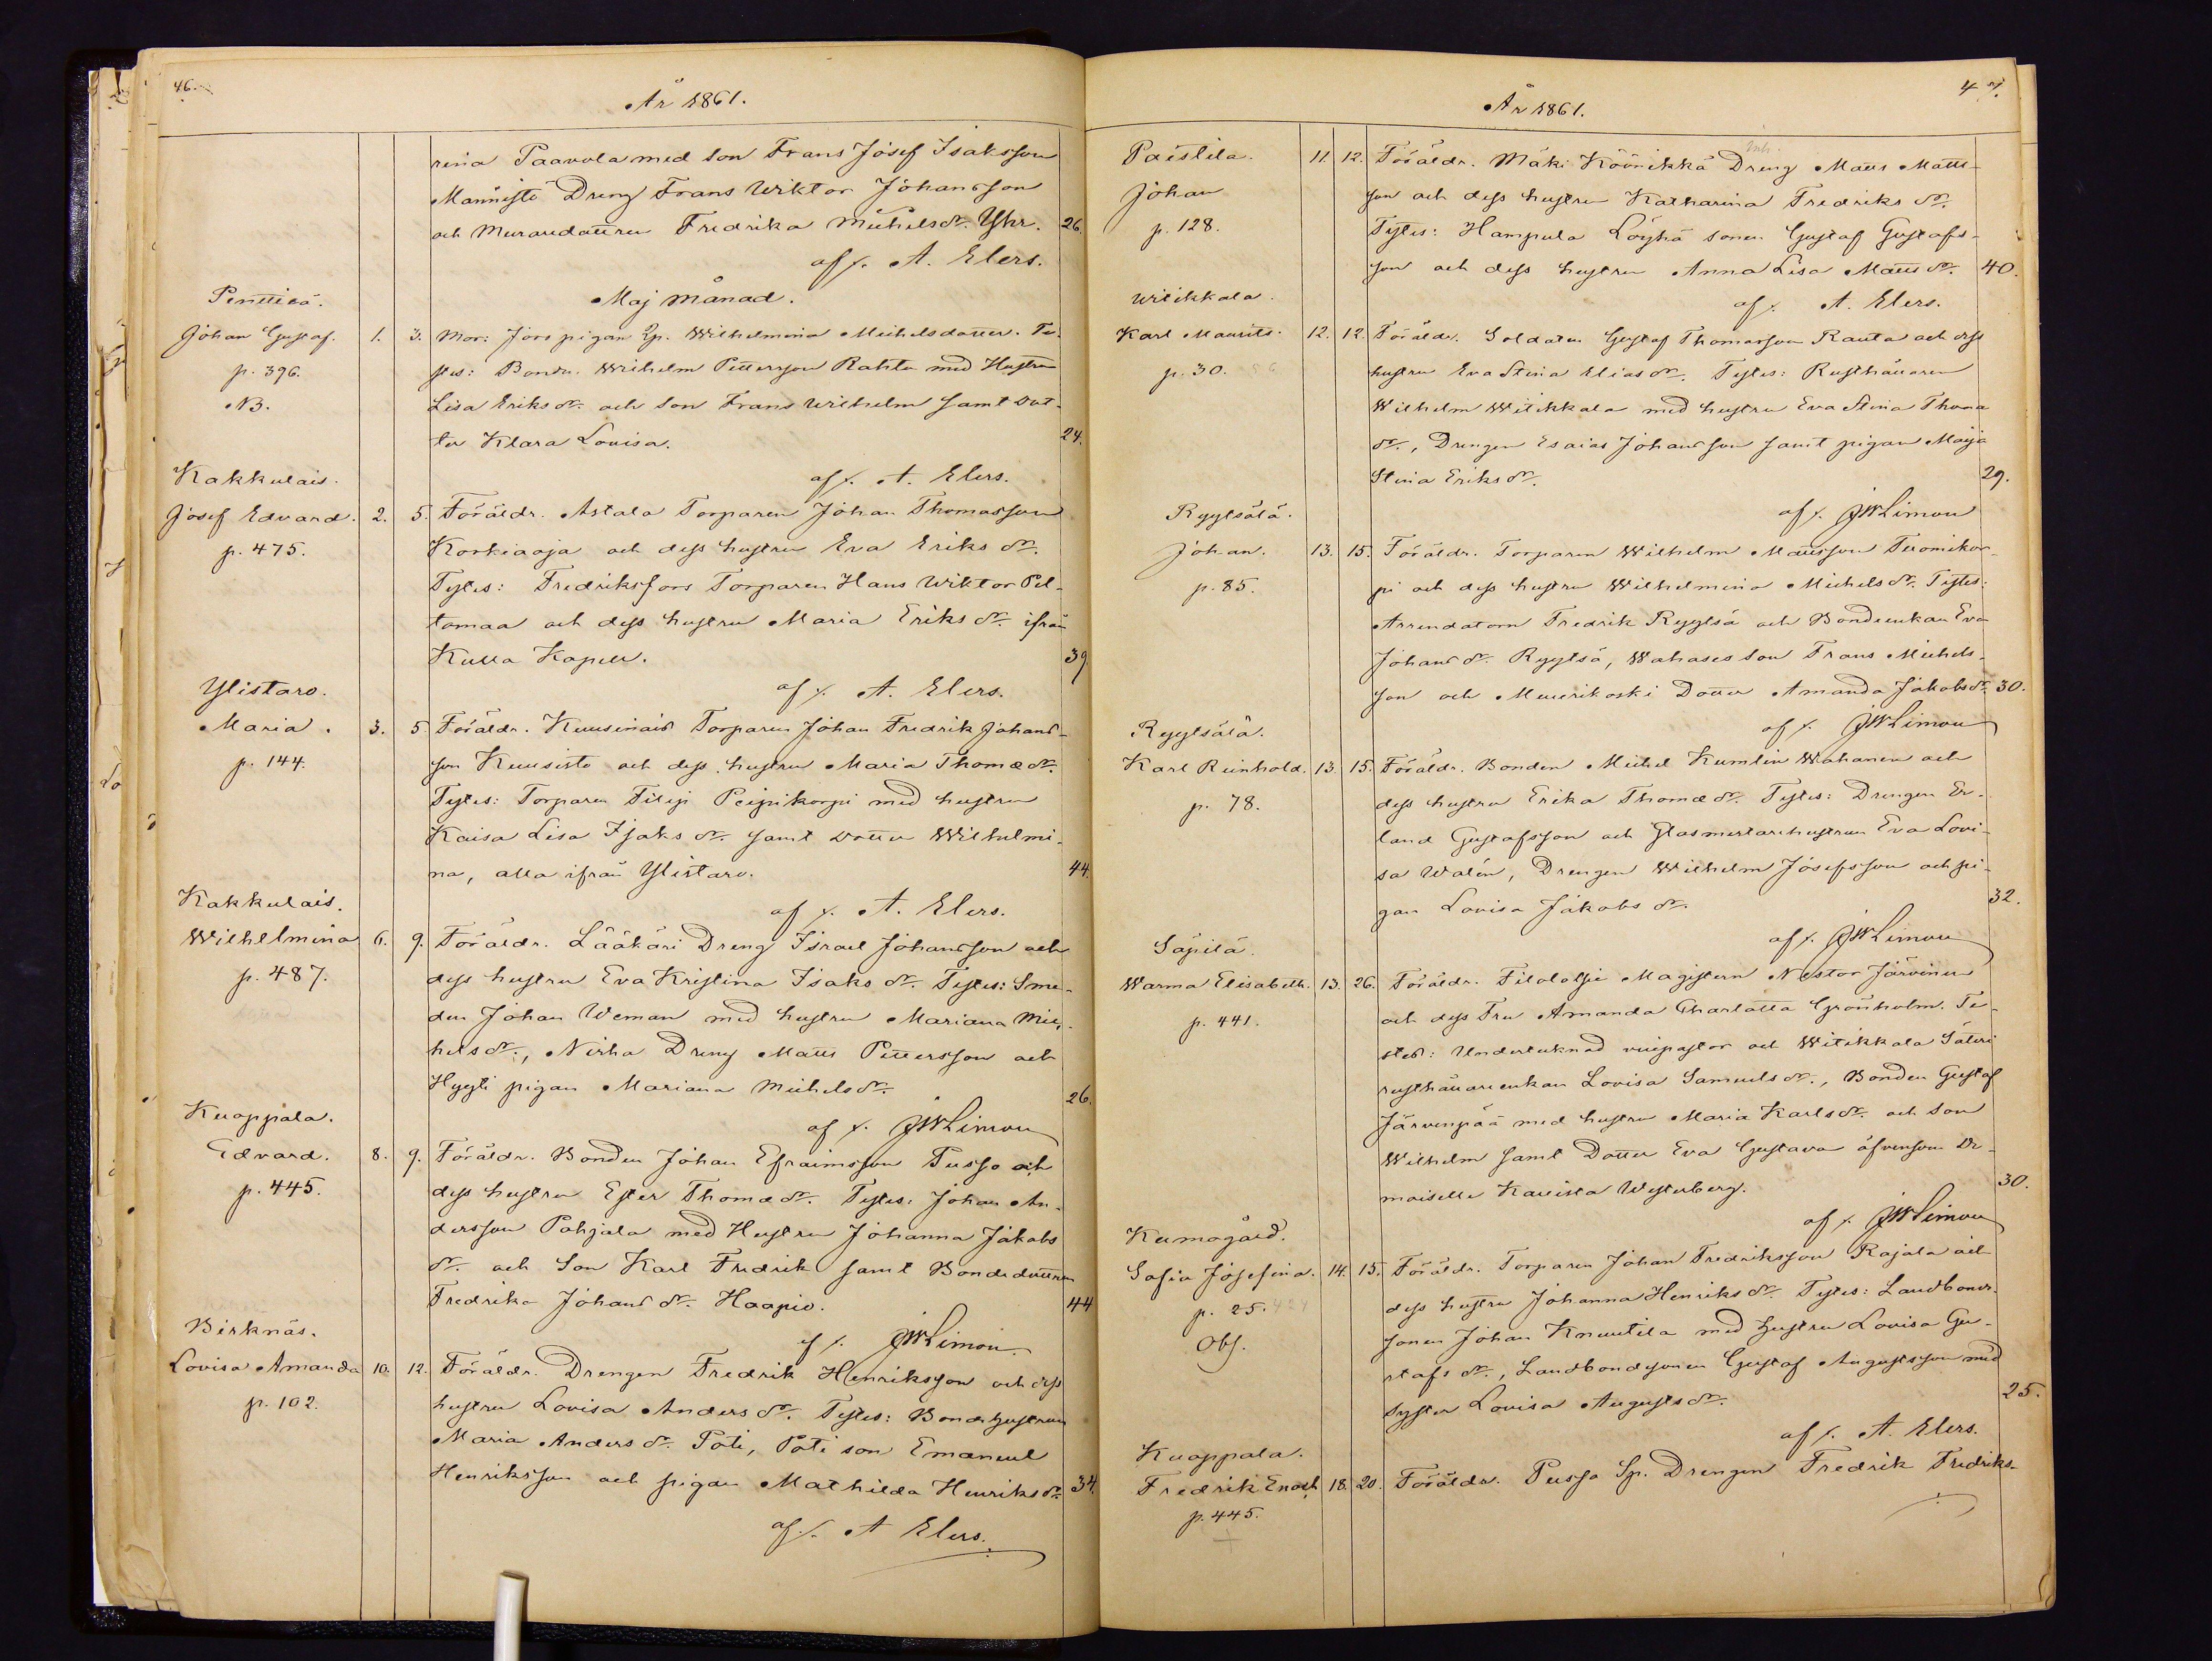 46.
År 1861.
rina Paavola med son Frans Josef Isaksson
Männistö Dreng Frans Wiktor Johansson
och Muraredottren Fredrika Michelsdr. Yhr. 26.
af f. A. Elers.
Penttilä. Maj månad.
Johan Gustaf. 1. 3. Mor: Jors pigan Lp. Wilhelmina Michelsdotter. Te-
p. 396. stes: Bonden Wilhelm Pettersson Rahta med Hustru
NB. Lisa Eriks dr. och son Frans Wilhelm samt Dot-
ter Klara Lovisa. 24.
Kakkulais. af f. A. Elers.
Josef Edvard. 2. 5. Föräldr. Astala Torparen Johan Thomasson
p. 475. Korkiaoja och dess hustru Eva Eriks dr.
Testes: Fredriksfors Torparen Hans Wiktor Pel-
tomaa och dess hustru Maria Eriks dr. ifrån
Kulla Kapell. 39.
Ylistaro. af f. A. Elers.
Maria. 3. 5 Föräldr. Kuusinais Torparen Johan Fredrik Johans-
p. 144. son Kuusisto och dess hustru Maria Thomæ dr.
Testes: Torparen Filip Peipikorpi med hustru
Kaisa Lisa Isaks dr. samt dotter Wilhelmi-
na, alla ifrån Ylistaro. 44.
Kakkulais. af f. A. Elers.
Wilhelmina 6. 9. Föräldr. Lääkäri Dreng Israel Johansson och
p. 487. dess hustru Eva Kristina Isaks dr. Testes: Sme-
den Johan Weman med hustru Mariana Mic-
helsdr., Nirha Dreng Matts Pettersson och
Hyyti pigan Mariana Michelsdr. 26.
Kuoppala. af f. JWLimon
Edvard. 8. 9. Föräldr. Bonden Johan Efraimsson Pusso och
p. 445. dess hustru Ester Thomæ dr. Testes: Johan An-
dersson Pohjala med Hustru Johanna Jakobs
dr. och Son Karl Fredrik samt Bondedottren
Fredrika Johans dr. Haapio. 44
Birknäs. af f. JWLimon
Lovisa Amanda 10. 12. Föräldr. Drengen Fredrik Henriksson och dess
p. 102. hustru Lovisa Anders dr. Testes: Bondehustrun
Maria Anders dr. Poti, Poti son Emanuel
Henriksson och pigan Mathilda Henriksdr 34.
af f. A Elers.
47.
År 1861.
Paistila. 11. 12. Föräldr. Mäki Köönikkä Dreng Matts Matts-
Johan son och dess hustru Katharina Fredriks dr.
p. 128. Testes: Hampula Löyhä sonen Gustaf Gustafs-
son och dess hustru Anna Lisa Matts dr. 40.
Witikkala. af f. A. Elers.
Karl Maurits. 12. 12. Föräldr. Soldaten Gustaf Thomasson Rauta och dess
p. 30. hustru Eva Stina Elias dr. Testes: Rusthållaren
Wilhelm Witikkala med hustru Eva Stina Thoma
dr., Drengen Esaias Johansson samt pigan Maija
Stina Eriks dr. 29.
Ryytsälä. af f. JWLimon
Johan. 13. 15. Föräldr. Torparen Wilhelm Mattsson Teromikor-
p. 85. pi och dess hustru Wilhelmina Michels dr. Testes:
Arrendatorn Fredrik Ryytsä och Bondeenkan Eva
Johans dr. Ryytsä, Wahases son Frans Michels-
son och Muurikoski Dotter Amanda Jakobsdr. 30.
Ryytsälä. af f. JWLimon
Karl Reinhold. 13. 15. Föräldr. Bonden Michel Kumlin Wahanen och
p. 78. dess hustru Erika Thomæ dr. Testes: Drengen Er-
land Gustafsson och Glasmestarehustrun Eva Lovi-
sa Walén, Drengen Wilhelm Josefsson och pi-
gan Lovisa Jakobs dr. 32.
Säpilä. af f. JWLimon
Warma Elisabeth. 13. 26. Föräldr. Filolofie Magistern Nestor Järvinen
p. 441. och dess Fru Amanda Charlotta Grönholm. Te-
stes: Undertecknad vicepastor och Witikkala Säteri
rusthållarenkan Lovisa Samuels dr., Bonden Gustaf
Järvenpää med hustru Maria Karlsdr. och son
Wilhelm samt Dotter Eva Gustava äfvensom De-
moiselle Karista Westerberg. 30.
Kumogård. af f. JWLimon
Sofia Josefina. 14. 15. Föräldr. Torparen Johan Fredriksson Rajala och
p. 25. dess hustru Johanna Henriks dr. Testes: Landbonde-
Obs. sonen Johan Knuutila med hustru Lovisa Gu-
stafs dr., Landbondsonen Gustaf Augustsson med
syster Lovisa Augustsdr. 25.
Kuoppala. af f. A. Elers.
Fredrik Enosh 18. 20. Föräldr. Pusso Sp. Drengen Fredrik Fredriks-
p. 445.